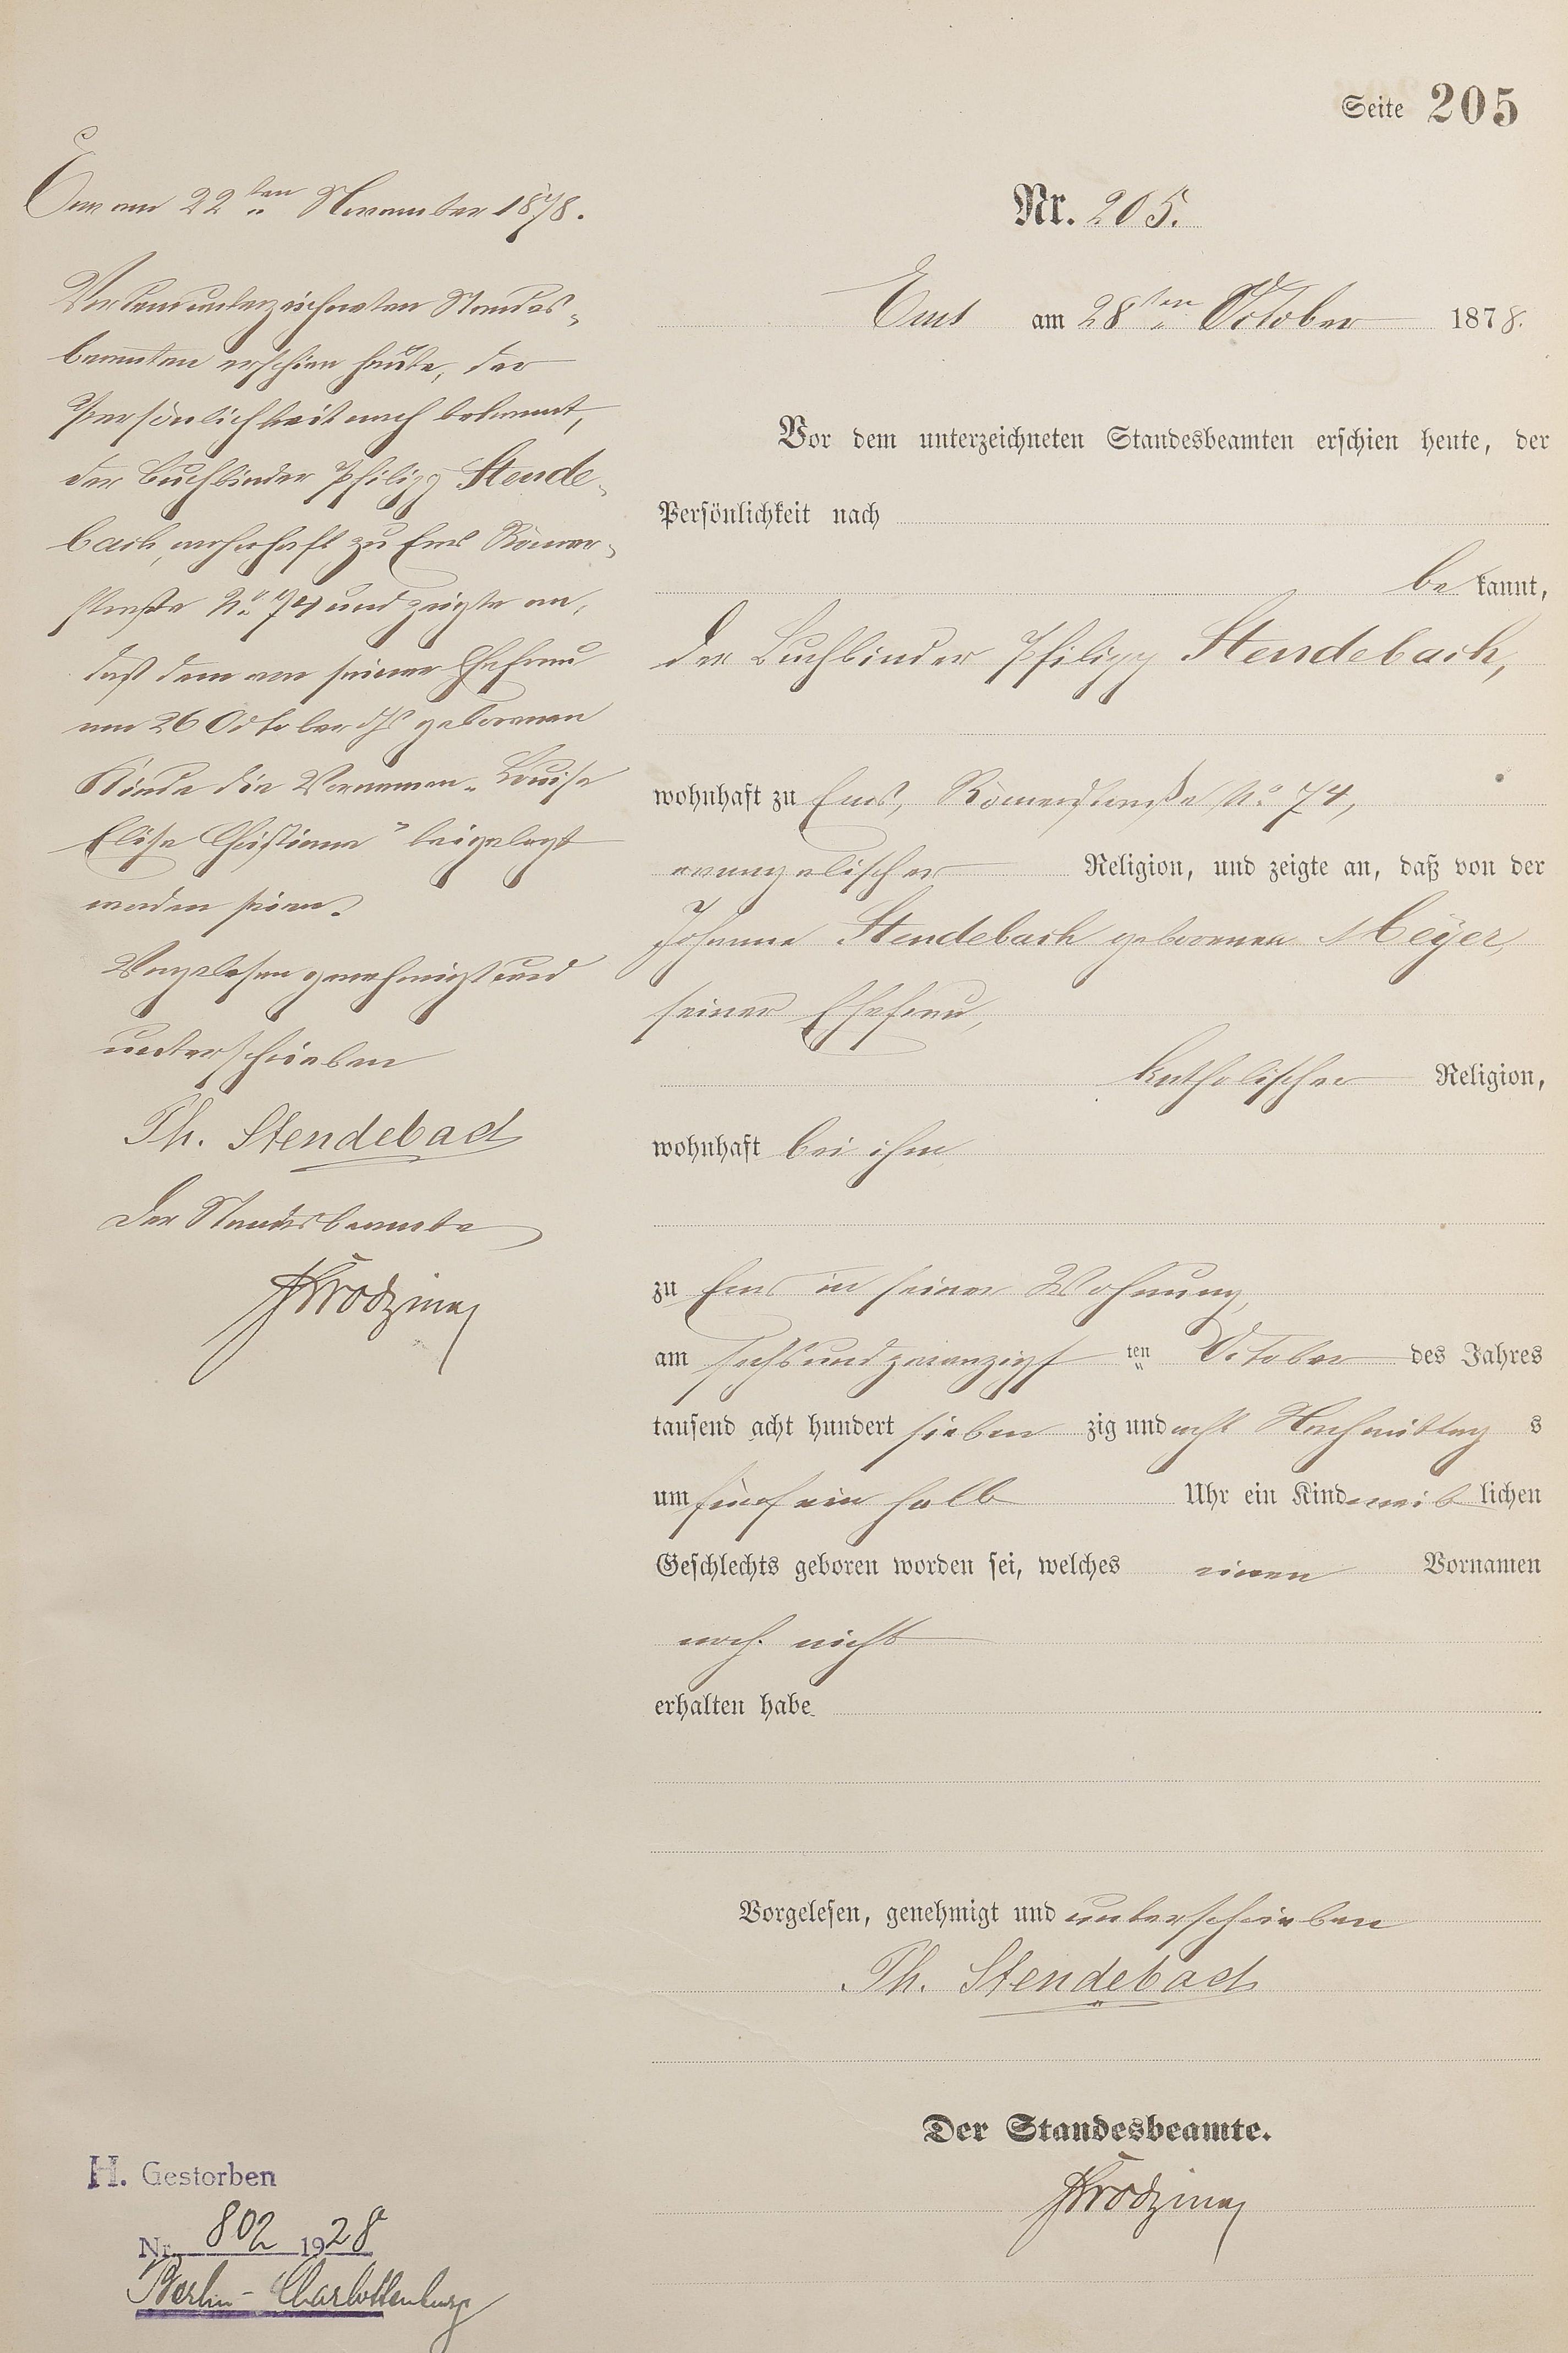 Seite 205
Nr. 205.
Ems am 28ten October 1878.
Vor dem unterzeichneten Standesbeamten erschien heute, der
Persönlichkeit nach
be kannt,
der Buchbinder Philipp Stendebach,
wohnhaft zu Ems, Römerstraße No 74,
evangelischer Religion, und zeigte an, daß von der
Johanna Stendebach geborenen Meÿer,
seiner Ehefrau,
katholischer Religion,
wohnhaft bei ihm
zu Ems in seiner Wohnung,
am sechsundzwanzigst ten October des Jahres
tausend acht hundert sieben zig und acht Nachmittag s
um fünf ein halb Uhr ein Kind weib lichen
Geschlechts geboren worden sei, welches einen Vornamen
noch nicht
erhalten habe
Vorgelesen, genehmigt und unterschrieben
Ph. Stendebach
Der Standesbeamte.
Ems am 22ten November 1878.
Vor dem unterzeichneten Standes-
beamten erschien heute, der
Persönlichkeit nach bekannt,
der Buchbinder Philipp Stende-
bach, wohnhaft zu Ems Römer-
straße No 74 und zeigte an,
daß dem von seiner Ehefrau
am 26 October dJs geborenen
Kinde die Vornamen „Louise
Elise Christiane“ beigelegt
worden seien.
Vorgelesen genehmigt und
unterschrieben
Ph. Stendebach
Der Standesbeamte
H. Gestorben
Nr. 802 1928
Berlin-Charlottenburg